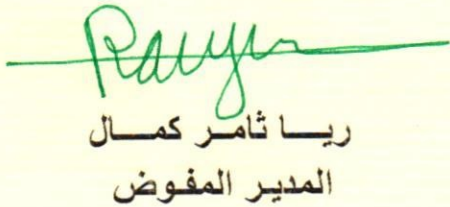 ريا ثامر كمال
المدير المفوض